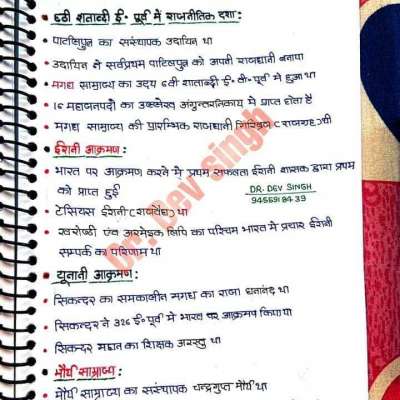 6ठी शताब्दी ई॰ पूर्व में राजनीतिक दशा:
पाटलिपुत्र का संस्थापक उदायिन था
उदायिन ने सर्वप्रथम पाटलिपुत्र को अपनी राजधानी बनाया
मगध साम्राज्य का उदय 6वी शताब्दी ई॰ पूर्व में हुआ था
16 महाजनपदों का उल्लेख अंगुत्तरनिकाय में प्राप्त होता है
मगध साम्राज्य की प्रारम्भिक राजधानी गिरिब्रज (राजगृह) थी
ईरानी आक्रमण:
भारत पर आक्रमण करने में प्रथम सफलता ईरानी शासक द्वारा प्रथम
को प्राप्त हुई
DR. DEV SINGH
टेसियस ईरानी (राजवैद्य) था
खरोष्ठी एंव अरमेइक लिपि का पश्चिम भारत में प्रचार ईरानी
सम्पर्क का परिणाम था
यूनानी आक्रमण:
सिकन्दर का समकालीन मगध का राजा धनानंद था
सिकन्दर ने 326 ई॰ पूर्व में भारत पर आक्रमण किया था
सिकन्दर महान का शिक्षक अरस्तु था
मौर्य साम्राज्य:
मौर्य साम्राज्य का संस्थापक चन्द्रगुप्त मौर्य था
Dr. Dev Singh